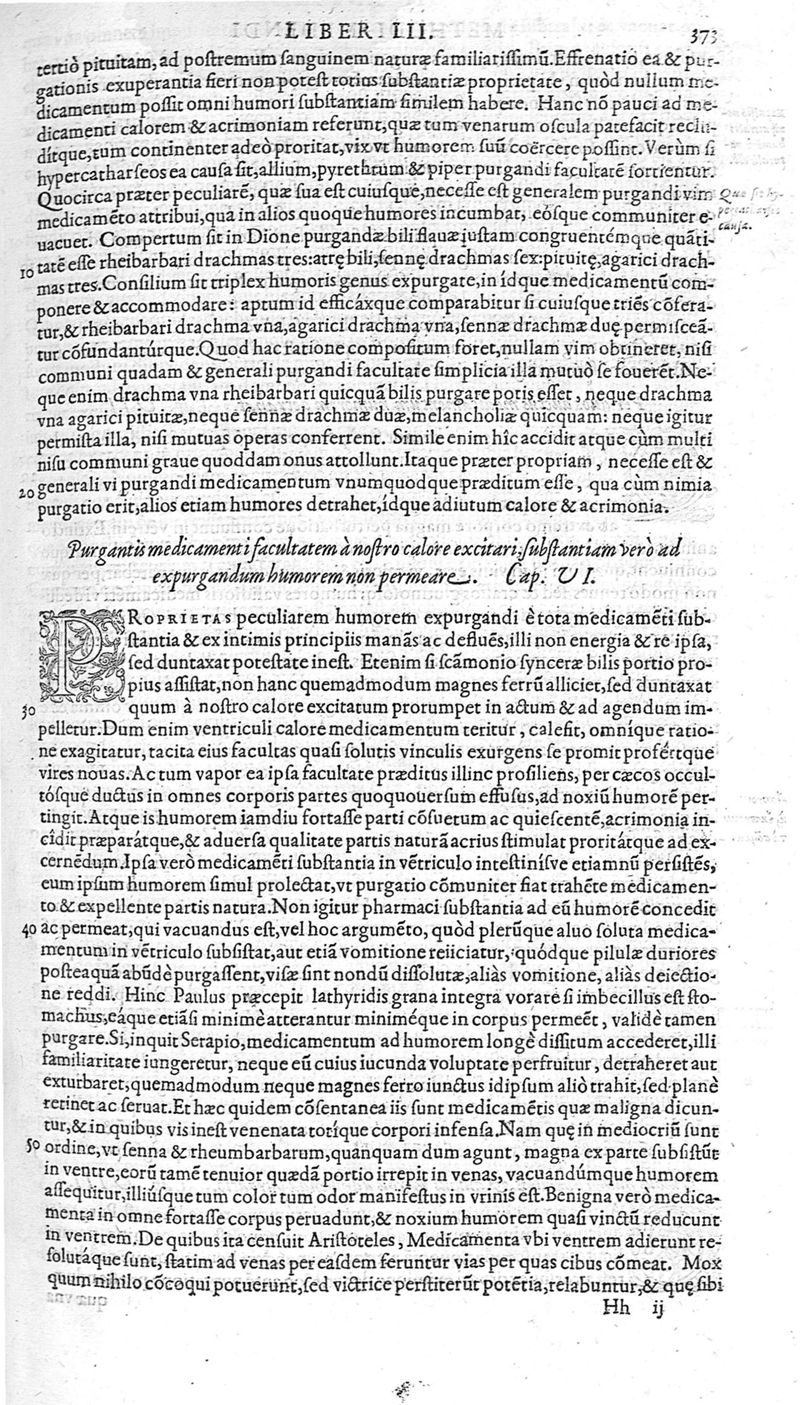 LIBER III. 373
tertiò pituitam, ad postremum sanguinem naturæ familiarissimũ. Effrenatio ea & pur-
gationis exuperantia fieri non potest totius substantiæ proprietate, quòd nullum me-
dicamentum possit omni humori substantiam similem habere. Hanc nõ pauci ad me-
dicamenti calorem & acrimoniam referunt, quæ tum venarum oscula patefacit reclu-
dítque, tum continenter adeò proritat, vix vt humorem suũ coërcere possint. Verùm si
hypercatharseos ea causa sit, allium, pyrethrum & piper purgandi facultatẽ sortientur.
Quocirca præter peculiarẽ, quæ sua est cuiusque, necesse est generalem purgandi vim
medicamẽto attribui, qua in alios quoque humores incumbat, eósque communiter e-
causa.
uacuet. Compertum sit in Dione purgandæ bili flauæ iustam congruentémque quãti-
10 tatẽ esse rheibarbari drachmas tres: atrę bili, sennę drachmas sex: pituitę, agarici drach-
mas tres. Consilium sit triplex humoris genus expurgare, in ídque medicamentũ com-
ponere & accommodare: aptum id efficáxque comparabitur si cuiusque triẽs cõfera-
tur, & rheibarbari drachma vna, agarici drachma vna, sennæ drachmæ duę permisceã-
tur cõfundantúrque. Quod hac ratione compositum foret, nullam vim obtineret, nisi
communi quadam & generali purgandi facultate simplicia illa mutuò se fouerẽt. Ne-
que enim drachma vna rheibarbari quicquã bilis purgare potis esset, neque drachma
vna agarici pituitæ, neque sennæ drachmæ duæ, melancholiæ quicquam: neque igitur
permista illa, nisi mutuas operas conferrent. Simile enim hîc accidit atque cùm multi
nisu communi graue quoddam onus attollunt. Itaque præter propriam, necesse est &
20 generali vi purgandi medicamentum vnumquodque præditum esse, qua cùm nimia
purgatio erit, alios etiam humores detrahet, ídque adiutum calore & acrimonia.
Purgantis medicamenti facultatem à nostro calore excitari, substantiam verò ad
expurgandum humorem non permeare. Cap. VI.
PROPRIETAS peculiarem humorem expurgandi è tota medicamẽti sub-
stantia & ex intimis principiis manãs ac defluẽs, illi non energia & re ipsa,
sed duntaxat potestate inest. Etenim si scãmonio synceræ bilis portio pro-
pius assistat, non hanc quemadmodum magnes ferrũ alliciet, sed duntaxat
30 quum à nostro calore excitatum prorumpet in actum & ad agendum im-
pelletur. Dum enim ventriculi calore medicamentum teritur, calefit, omníque ratio-
ne exagitatur, tacita eius facultas quasi solutis vinculis exurgens se promit profértque
vires nouas. Ac tum vapor ea ipsa facultate præditus illinc prosiliens, per cæcos occul-
tósque ductus in omnes corporis partes quoquouersum effusus, ad noxiũ humorẽ per-
tingit. Atque is humorem iamdiu fortasse parti cõsuetum ac quiescentẽ, acrimonia in-
cîdit præparátque, & aduersa qualitate partis naturã acrius stimulat proritátque ad ex-
cernẽdum. Ipsa verò medicamẽti substantia in vẽtriculo intestinísve etiamnũ persistẽs,
eum ipsum humorem simul prolectat, vt purgatio cõmuniter fiat trahẽte medicamen-
to & expellente partis natura. Non igitur pharmaci substantia ad eũ humorẽ concedit
40 ac permeat, qui vacuandus est, vel hoc argumẽto, quòd plerũque aluo soluta medica-
mentum in vẽtriculo subsistat, aut etiã vomitione reiiciatur, quódque pilulæ duriores
posteaquã abũdè purgassent, visæ sint nondũ dissolutæ, aliàs vomitione, aliàs deiectio-
ne reddi. Hinc Paulus præcepit lathyridis grana integra vorare si imbecillus est sto-
machus, eáque etiãsi minimè atterantur miniméque in corpus permeẽt, validè tamen
purgare. Si, inquit Serapio, medicamentum ad humorem longè dissitum accederet, illi
familiaritate iungeretur, neque eũ cuius iucunda voluptate perfruitur, detraheret aut
exturbaret, quemadmodum neque magnes ferro iunctus id ipsum aliò trahit, sed planè
retinet ac seruat. Et hæc quidem cõsentanea iis sunt medicamẽtis quæ maligna dicun-
tur, & in quibus vis inest venenata totíque corpori infensa. Nam quę in mediocriũ sunt
50 ordine, vt senna & rheumbarbarum, quanquam dum agunt, magna ex parte subsistũt
in ventre, eorũ tamẽ tenuior quædã portio irrepit in venas, vacuandúmque humorem
assequitur, illiúsque tum color tum odor manifestus in vrinis est. Benigna verò medica-
menta in omne fortasse corpus peruadunt, & noxium humorem quasi vinctũ reducunt
in ventrem. De quibus ita censuit Aristoteles, Medicamenta vbi ventrem adierunt re-
solutáque sunt, statim ad venas per easdem feruntur vias per quas cibus cõmeat. Mox
quum nihilo cõcoqui potuerunt, sed victrice perstiterũt potẽtia, relabuntur, & quę sibi
Hh ij